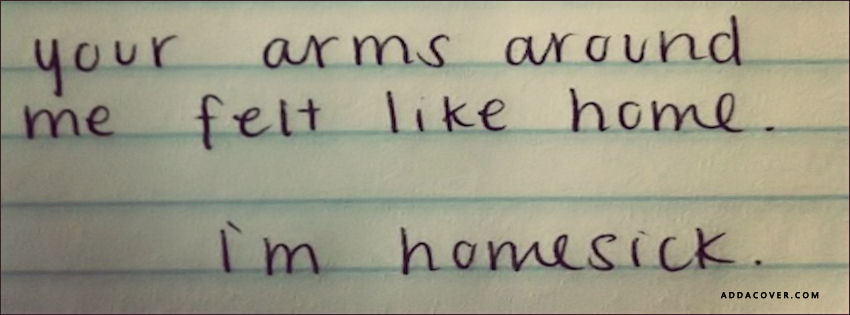 your arms around
me felt like home.
i'm homesick.
ADDACOVER.COM